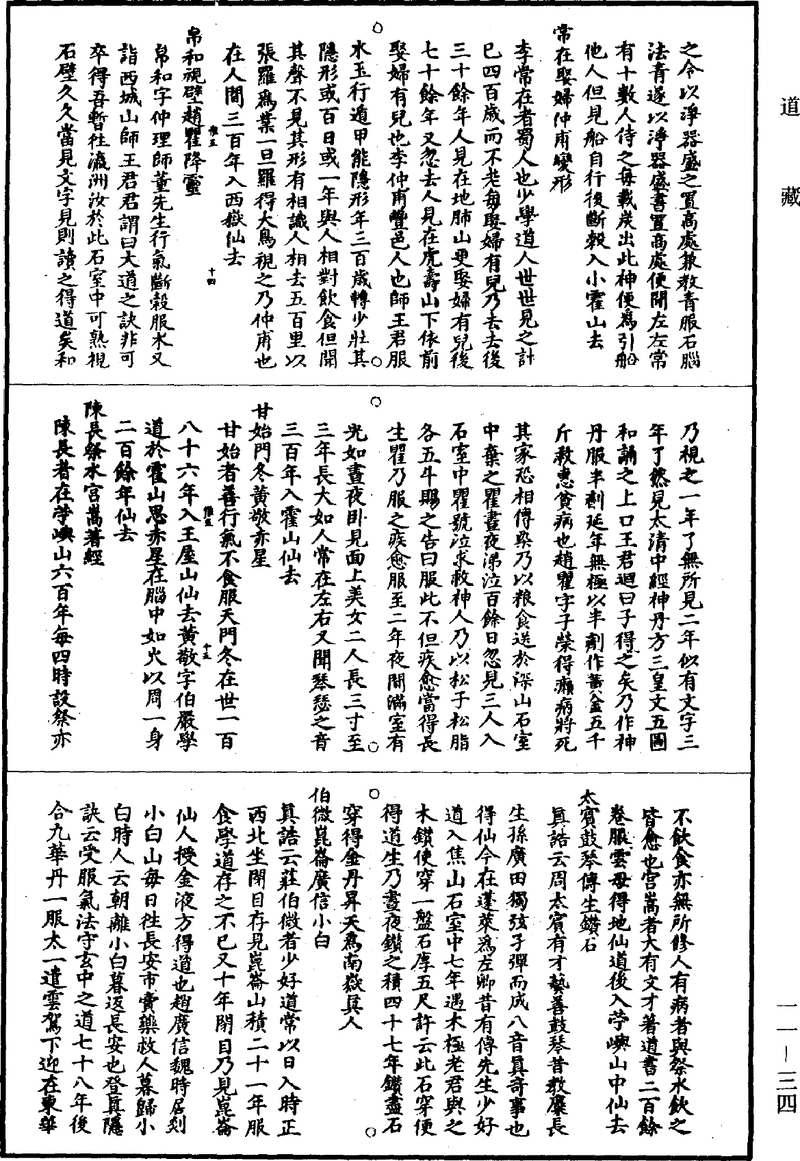 道藏
之令以淨器盛之置高處兼教青服石腦
法青遂以淨器盛書置高處便聞左左常
有十數人侍之每載炭出此神便為引船
他人但見船自行後斷穀入小霍山去
常在娶婦仲甫變形
李常在者蜀人也少學道人世世見之計
已四百歲而不老每娶婦有兒乃去去後
三十餘年人見在地肺山更娶婦有兒後
七十餘年又忽去人見在虎壽山下依前
娶婦有兒也李仲甫豐邑人也師王君服
水玉行遁甲能隱形年三百歲轉少壯其
隱形或百日或一年與人相對飲食但聞
其聲不見其形有相識人相去五百里以
張羅為業一旦羅得大鳥視之乃仲甫也
在人間三百年入西嶽仙去
十四
帛和視壁趙瞿降靈
帛和字仲理師董先生行氣斷穀服水又
詣西城山師王君君謂曰大道之訣非可
卒得吾暫往瀛洲汝於此石室中可熟視
石壁久久當見文字見則讀之得道矣和
乃視之一年了無所見二年似有文字三
年了然見太清中經神丹方三皇文五圖
和誦之上口王君迴曰子得之矣乃作神
丹服半劑延年無極以半劑作黃金五千
斤救惠貧病也趙瞿字子榮得癩病將死
其家恐相傳染乃以粮食送於深山石室
中棄之瞿晝夜涕泣百餘日忽見三人入
石室中瞿號泣求救神人乃以松子松脂
各五斗賜之告曰服此不但疾愈當得長
生瞿乃服之疾愈服至二年夜間滿室有
光如晝夜卧見面上美女二人長三寸至
三年長大如人常在左右又聞琴瑟之音
三百年入霍山仙去
甘始門冬黃敬赤星
甘始者善行氣不食服天門冬在世一百
十五
八十六年入王屋山仙去黃敬字伯嚴學
道於霍山思赤星在腦中如火以周一身
二百餘年仙去
陳長祭水宮嵩著經
陳長者在苧嶼山六百年每四時設祭亦
不飲食亦無所修人有病者與祭水飲之
皆愈也宮嵩者大有文才著道書二百餘
卷服雲母得地仙道後入苧嶼山中仙去
太賓鼓琴傳生鑽石
真誥云周太賓有才藝善鼓琴昔教糜長
生孫廣田獨弦子彈而成八音真奇事也
得仙今在蓬萊為左卿昔有傅先生少好
道入焦山石室中七年遇木極老君與之
木鑽使穿一盤石厚五尺許云此石穿便
得道生乃晝夜鑽之積四十七年鑽盡石
穿得金丹昇天為南嶽真人
伯微崑崙廣信小白
真誥云莊伯微者少好道常以日入時正
西北坐閉目存見崑崙山積二十一年服
食學道存之不已又十年閉目乃見崑崙
仙人授金液方得道也趙廣信魏時居剡
小白山每日往長安市賣藥救人暮歸小
白時人云朝離小白暮返長安也登真隱
訣云受服氣法守玄中之道七十八年後
合九華丹一服太一遣雲駕下迎在東華
一一—三四